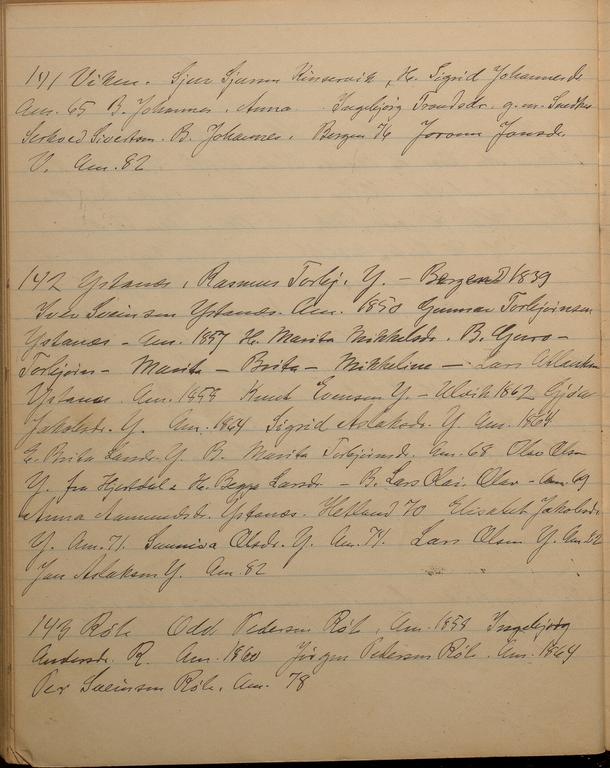 141 Viken. Sjur Sjursen Kinservik, H. Sigrid Johannesdr
Am. 65 B. Johannes, Anna Ingebjörg Trondsdr. g.m. Snedker
Sivertsen. B. Johannes, Bergen 76 Joronn Jonsdr.
V. Am. 82
142 Ystanes, Rasmus Torbj. Y. - Bergen 1839
Iver Sveinsen Ystanes. Am. 1850 Gunnar Torbjörnsen
Ystanes - Am. 1857 H. Marita Mikkelsdr. B. Guro -
Torbjörn - Marita - Brita - Mikkeline - Lars Aslaksen
Ystanes Am. 1858 Knut Evensen Y. - Ulvik 1862 Gjöa
Jakobsdr. Y. Am. 1864 Sigrid Aslaksdr. Y. Am. 1864
E. Brita Larsdr. Y. B. Marita Torbjörnsd. Am. 68 Olav Olsen
Y. fra H. Larsdr - B. Lars Olav - Am. 69
Anna Aamundsdr. Ystanes. Hetland 70 Elisabet Jakobsdr.
Y. Am. 71. Sunniva Olsdr. Y. Am. 74. Lars Olsen Y. Am. 82
Jan Aslaksen Y. Am. 82
143 Röte Odd Pedersen Röte, Am. 1858 Ingebjörg
Andersdr. R. Am. 1860 Jörgen Pedersen Röte. Am. 1864
Per Sveinsen Röte, Am. 78